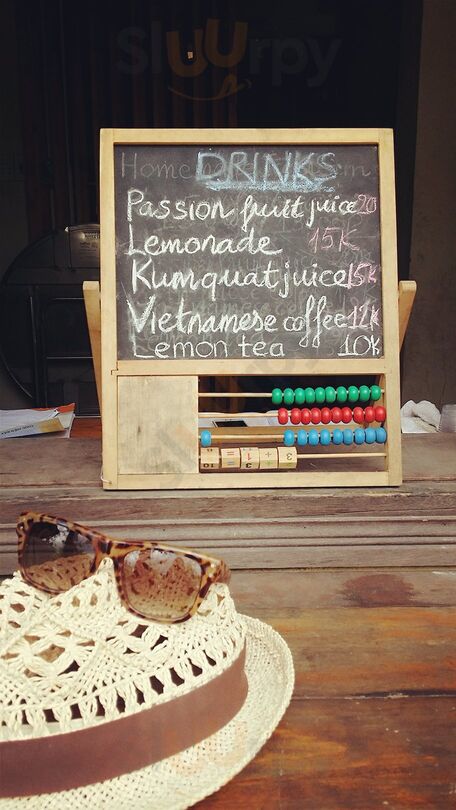 Sluurpy
DRINKS
Passion fruit juice 20
Lemonade 15K
Kumquat juice 15K
Vietnamese coffee 12K
Lemon tea 10K